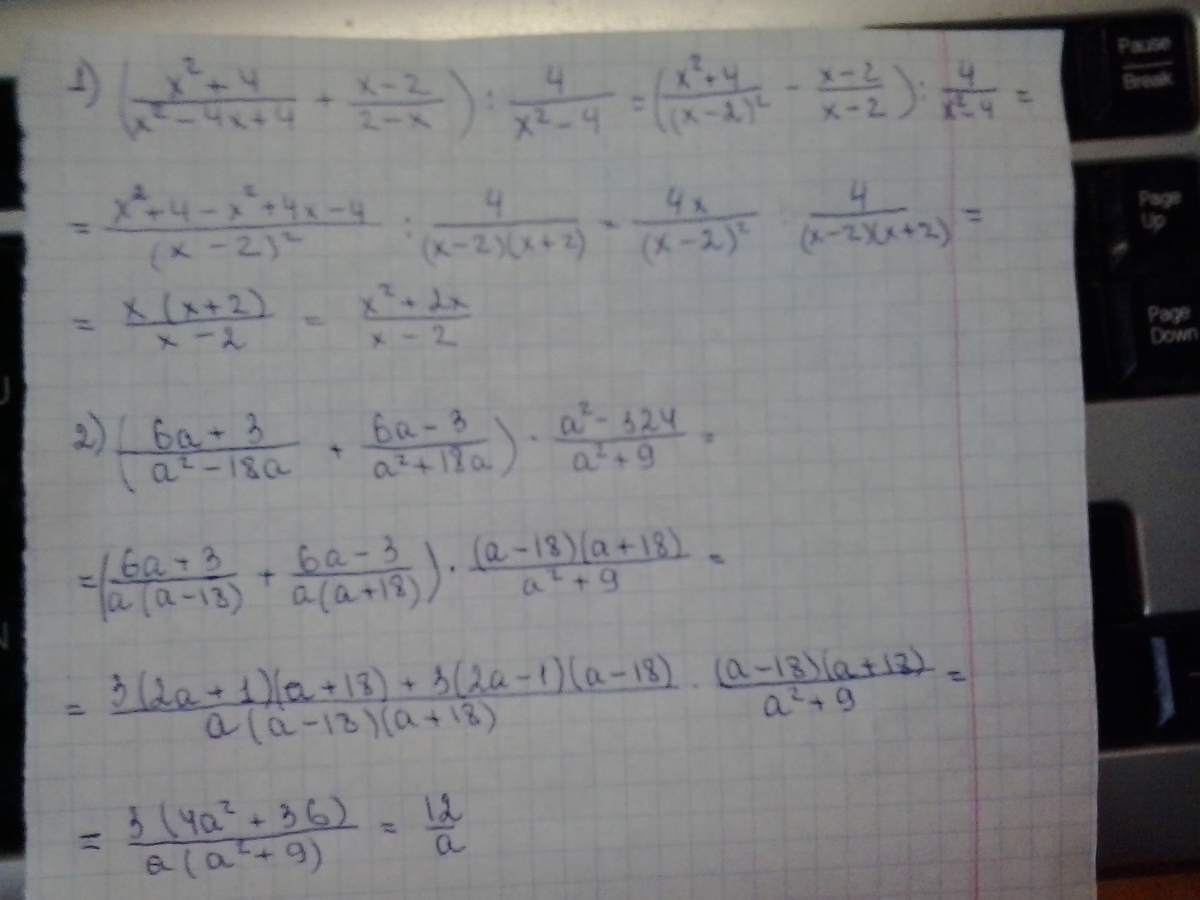 1) ( (x² + 4)/(x² - 4x + 4) + (x - 2)/(2 - x) ) : 4/(x² - 4) = ( (x² + 4)/(x - 2)² - (x - 2)/(x - 2) ) : 4/(x² - 4) =
= (x² + 4 - x² + 4x - 4)/(x - 2)² : 4/((x - 2)(x + 2)) = 4x/(x - 2)² : 4/((x - 2)(x + 2)) =
= x(x + 2)/(x - 2) = (x² + 2x)/(x - 2)
2) ( (6a + 3)/(a² - 18a) + (6a - 3)/(a² + 18a) ) · (a² - 324)/(a² + 9) =
= ( (6a + 3)/(a(a - 18)) + (6a - 3)/(a(a + 18)) ) · ((a - 18)(a + 18))/(a² + 9) =
= (3(2a + 1)(a + 18) + 3(2a - 1)(a - 18))/(a(a - 18)(a + 18)) · ((a - 18)(a + 18))/(a² + 9) =
= 3(4a² + 36)/(a(a² + 9)) = 12/a
Pause
Break
Page
Up
Page
Down